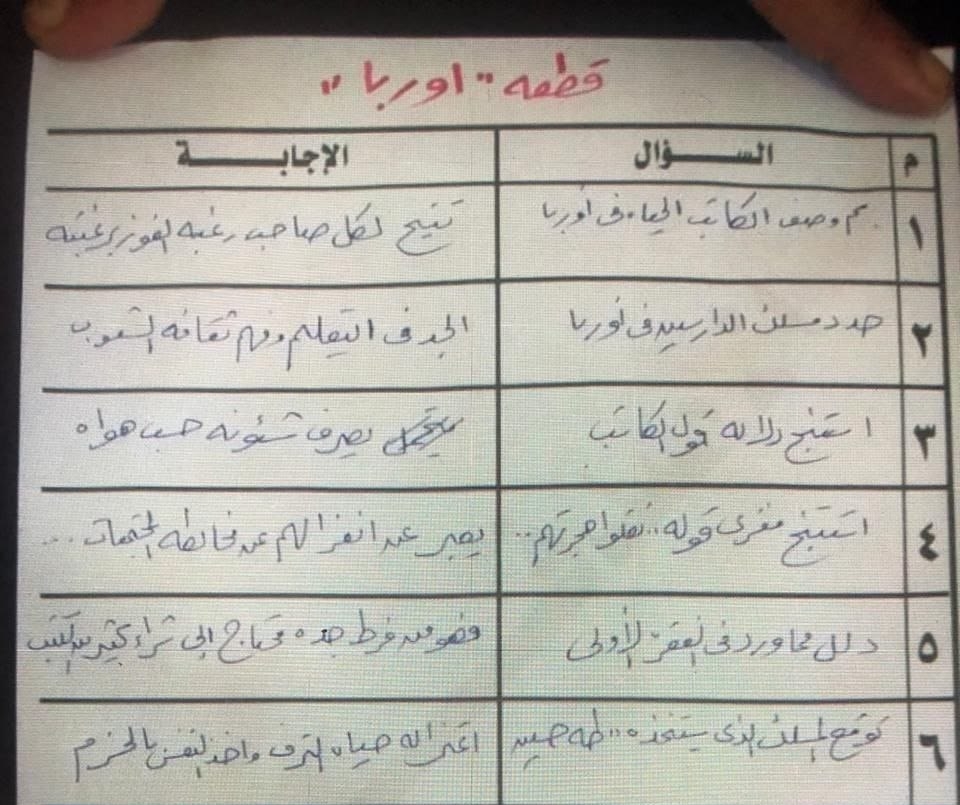 قطعه "اوربا"
م السؤال الإجابة
١ بم وصف الكاتب الحياه فى أوربا تتيح لكل صاحب رغبه الفوز برغبته
٢ حدد مسلك الدارسين فى أوربا الجد فى التعليم وفهم ثقافه الشعوب
٣ استنتج دلاله قول الكاتب يصرف شئونه حسب هواه
٤ استنتج مغزى قوله "نقلوا حجرتهم" يعبر عن انعزالهم عن مخالطه المجتمعات ...
٥ دلل مما ورد فى الفقرة الأولى فهو من فرط جده محتاج إلى شراء كثير من الكتب
٦ توقع المسلك الذى سيتخذه "طه حسين اعتزاله حياه الترف واخذ النفس بالحزم